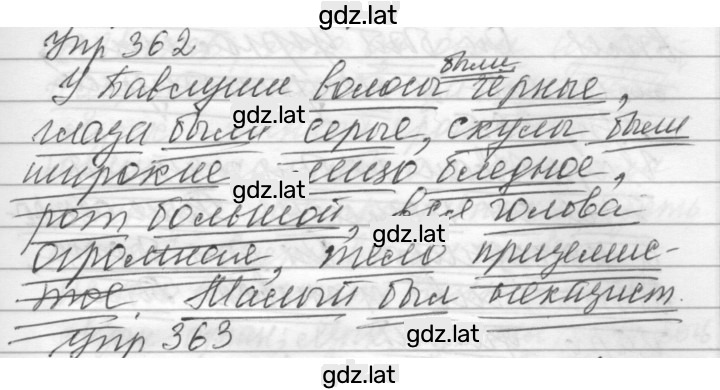 gdz.lat
Упр 362
были
У Павлуши волосы черные,
gdz.lat
глаза были серые, скулы были
широкие лицо бледное,
gdz.lat
рот большой, вся голова
gdz.lat
огромная, тело приземис-
тое Малый был неказист.
упр 363
gdz.lat
gdz.lat